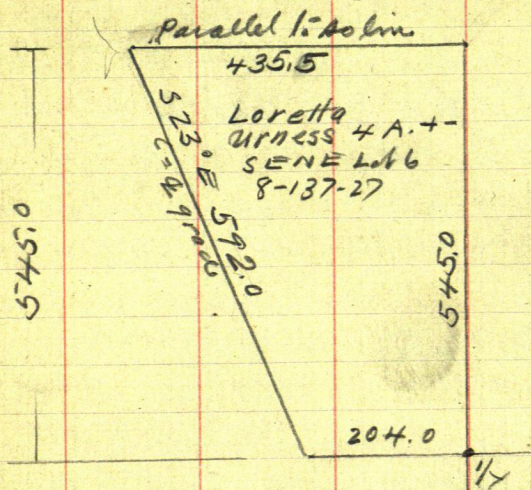 Parallel to so line
435.5
Loretta
Urness 4 A. +-
SENE Lot 6
8-137-27
S 23° E 592.0
545.0
545.0
204.0